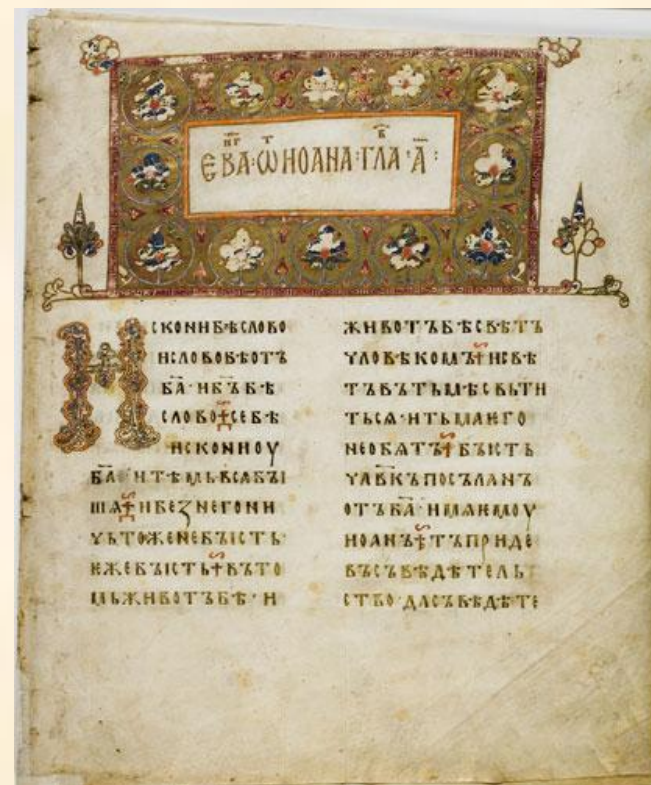 ЄВАⷩ҇ⷢ҇·Ѡⷮ ИОАНА·ГЛАⷡ҇·А҃:
ИСКОНИБѢСЛОВО
ИСЛОВОБѢОТЪ
Б҃А·ИБ҃ЪБѢ
СЛОВО·СЕБѢ
ИСКОНИОУ
Б҃А·ИТѢМЬВСѦБЪІ
ШѦ·ИБЕЗНЕГОНИ
ЧЬТОЖЕНЕБЪІСТЬ·
ЕЖЕБЪІСТЬ·ВЪТО
МЬЖИВОТЪБѢ·И
ЖИВОТЪБѢСВѢТЪ
ЧЛОВѢКОМЪ·ИСВѢ
ТЪВЪТЬМѢСВЬТИ
ТЬСѦ·ИТЬМАѤГО
НЕОБѦТЪ·БЪІСТЬ
ЧЛ҃ВКЪПОСЪЛАНЪ
ОТЪБ҃А·ИМѦѤМОУ
ИОАНЪ·ТЪПРИДЕ
ВЪСЪВѢДѢТЕЛЬ
СТВО·ДАСЪВѢДѢТЕ